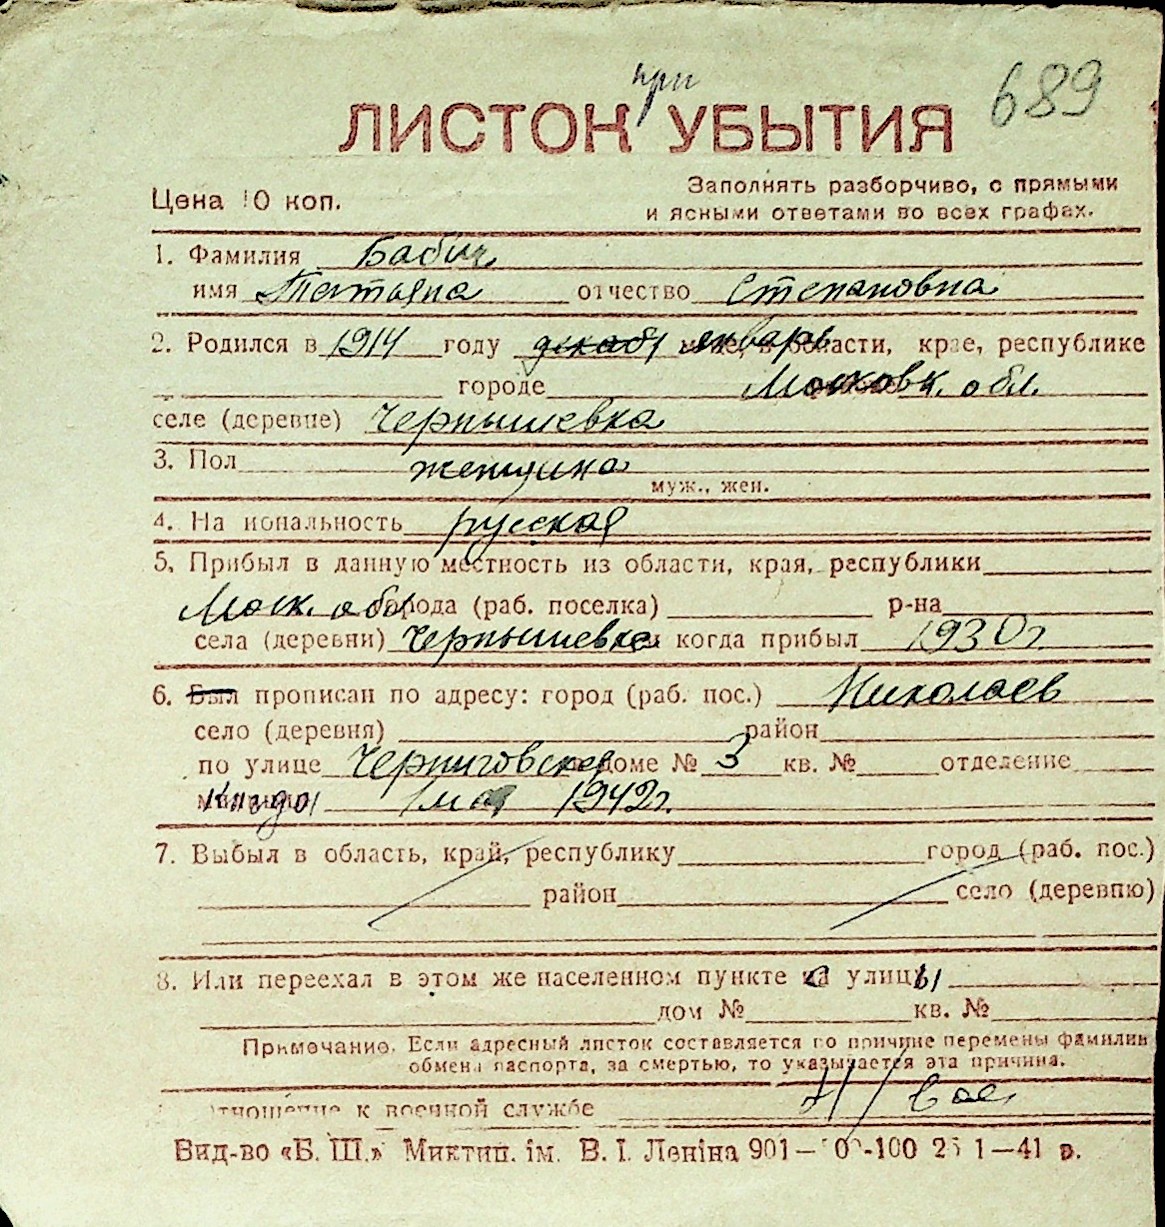 при
689
ЛИСТОК УБЫТИЯ
Цена 10 коп.
Заполнять разборчиво, с прямыми
и ясными ответами во всех графах.
1. Фамилия Бабич
имя Татьяна отчество Степановна
2. Родился в 1914 году декаб январь м-це, в области, крае, республике
городе Московск. обл.
селе (деревне) Чернышевка
3. Пол женщина
муж., жен.
4. На иональность русская
5. Прибыл в данную местность из области, края, республики
Моск. обл. города (раб. поселка) р-на
села (деревни) Чернышевка когда прибыл 1930 г.
6. Был прописан по адресу: город (раб. пос.) Николаев
село (деревня) район
по улице Черниговская доме № 3 кв. № отделение
милиции 1 мая 1942 г.
7. Выбыл в область, край, республику город (раб. пос.)
район село (деревню)
8. Или переехал в этом же населенном пункте с улицы
дом № кв. №
Примечание. Если адресный листок составляется по причине перемены фамилии
обмена паспорта, за смертью, то указывается эта причина.
тношение к военной службе н/вое
Вид-во «Б. Ш.» Миктип. ім. В. І. Леніна 901— 00-100 25 1—41 р.